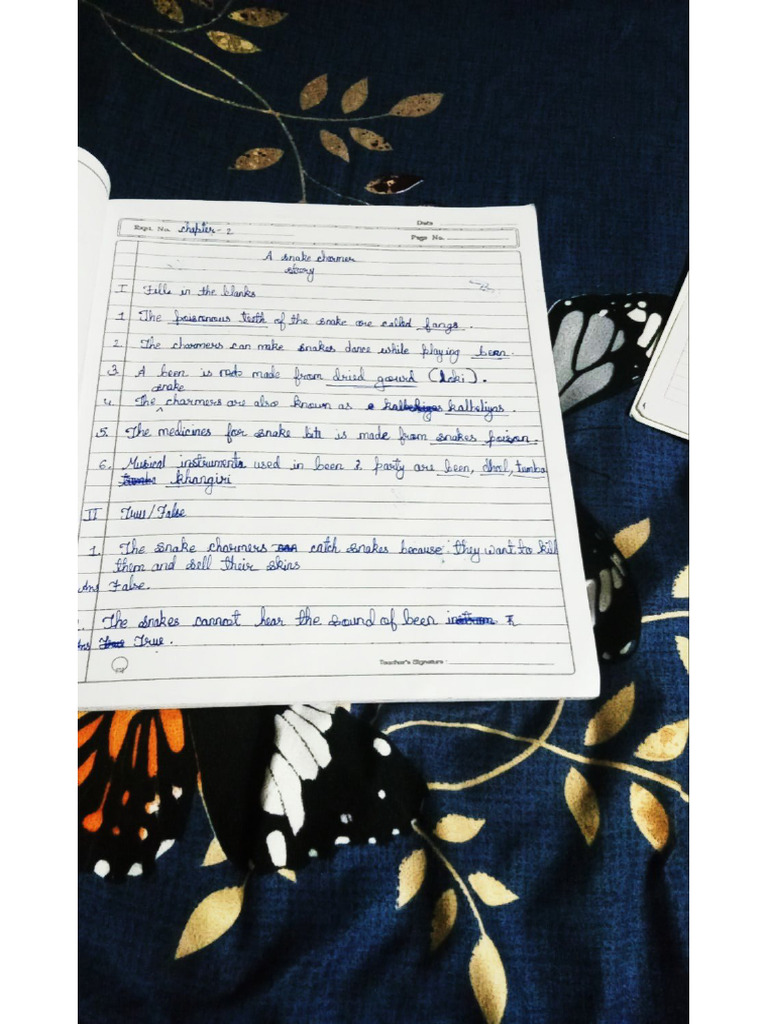 Date
Expt. No. Chapter - 2
Page No.
A snake charmer
story
I Fills in the blanks
1 The poisonous teeth of the snake are called fangs.
2 The charmers can make snakes dance while playing been.
3 A been is made from dried gourd (loki).
snake
4. The ^ charmers are also known as kalbeliyas.
5. The medicines for snake bite is made from snakes poison.
6. Musical instruments used in been party are been, dhol, tumba
khangiri
II True/False
1. The snake charmers catch snakes because they want to kill
them and sell their skins
Ans False.
The snakes cannot hear the sound of been
Ans True.
Teacher's Signature :